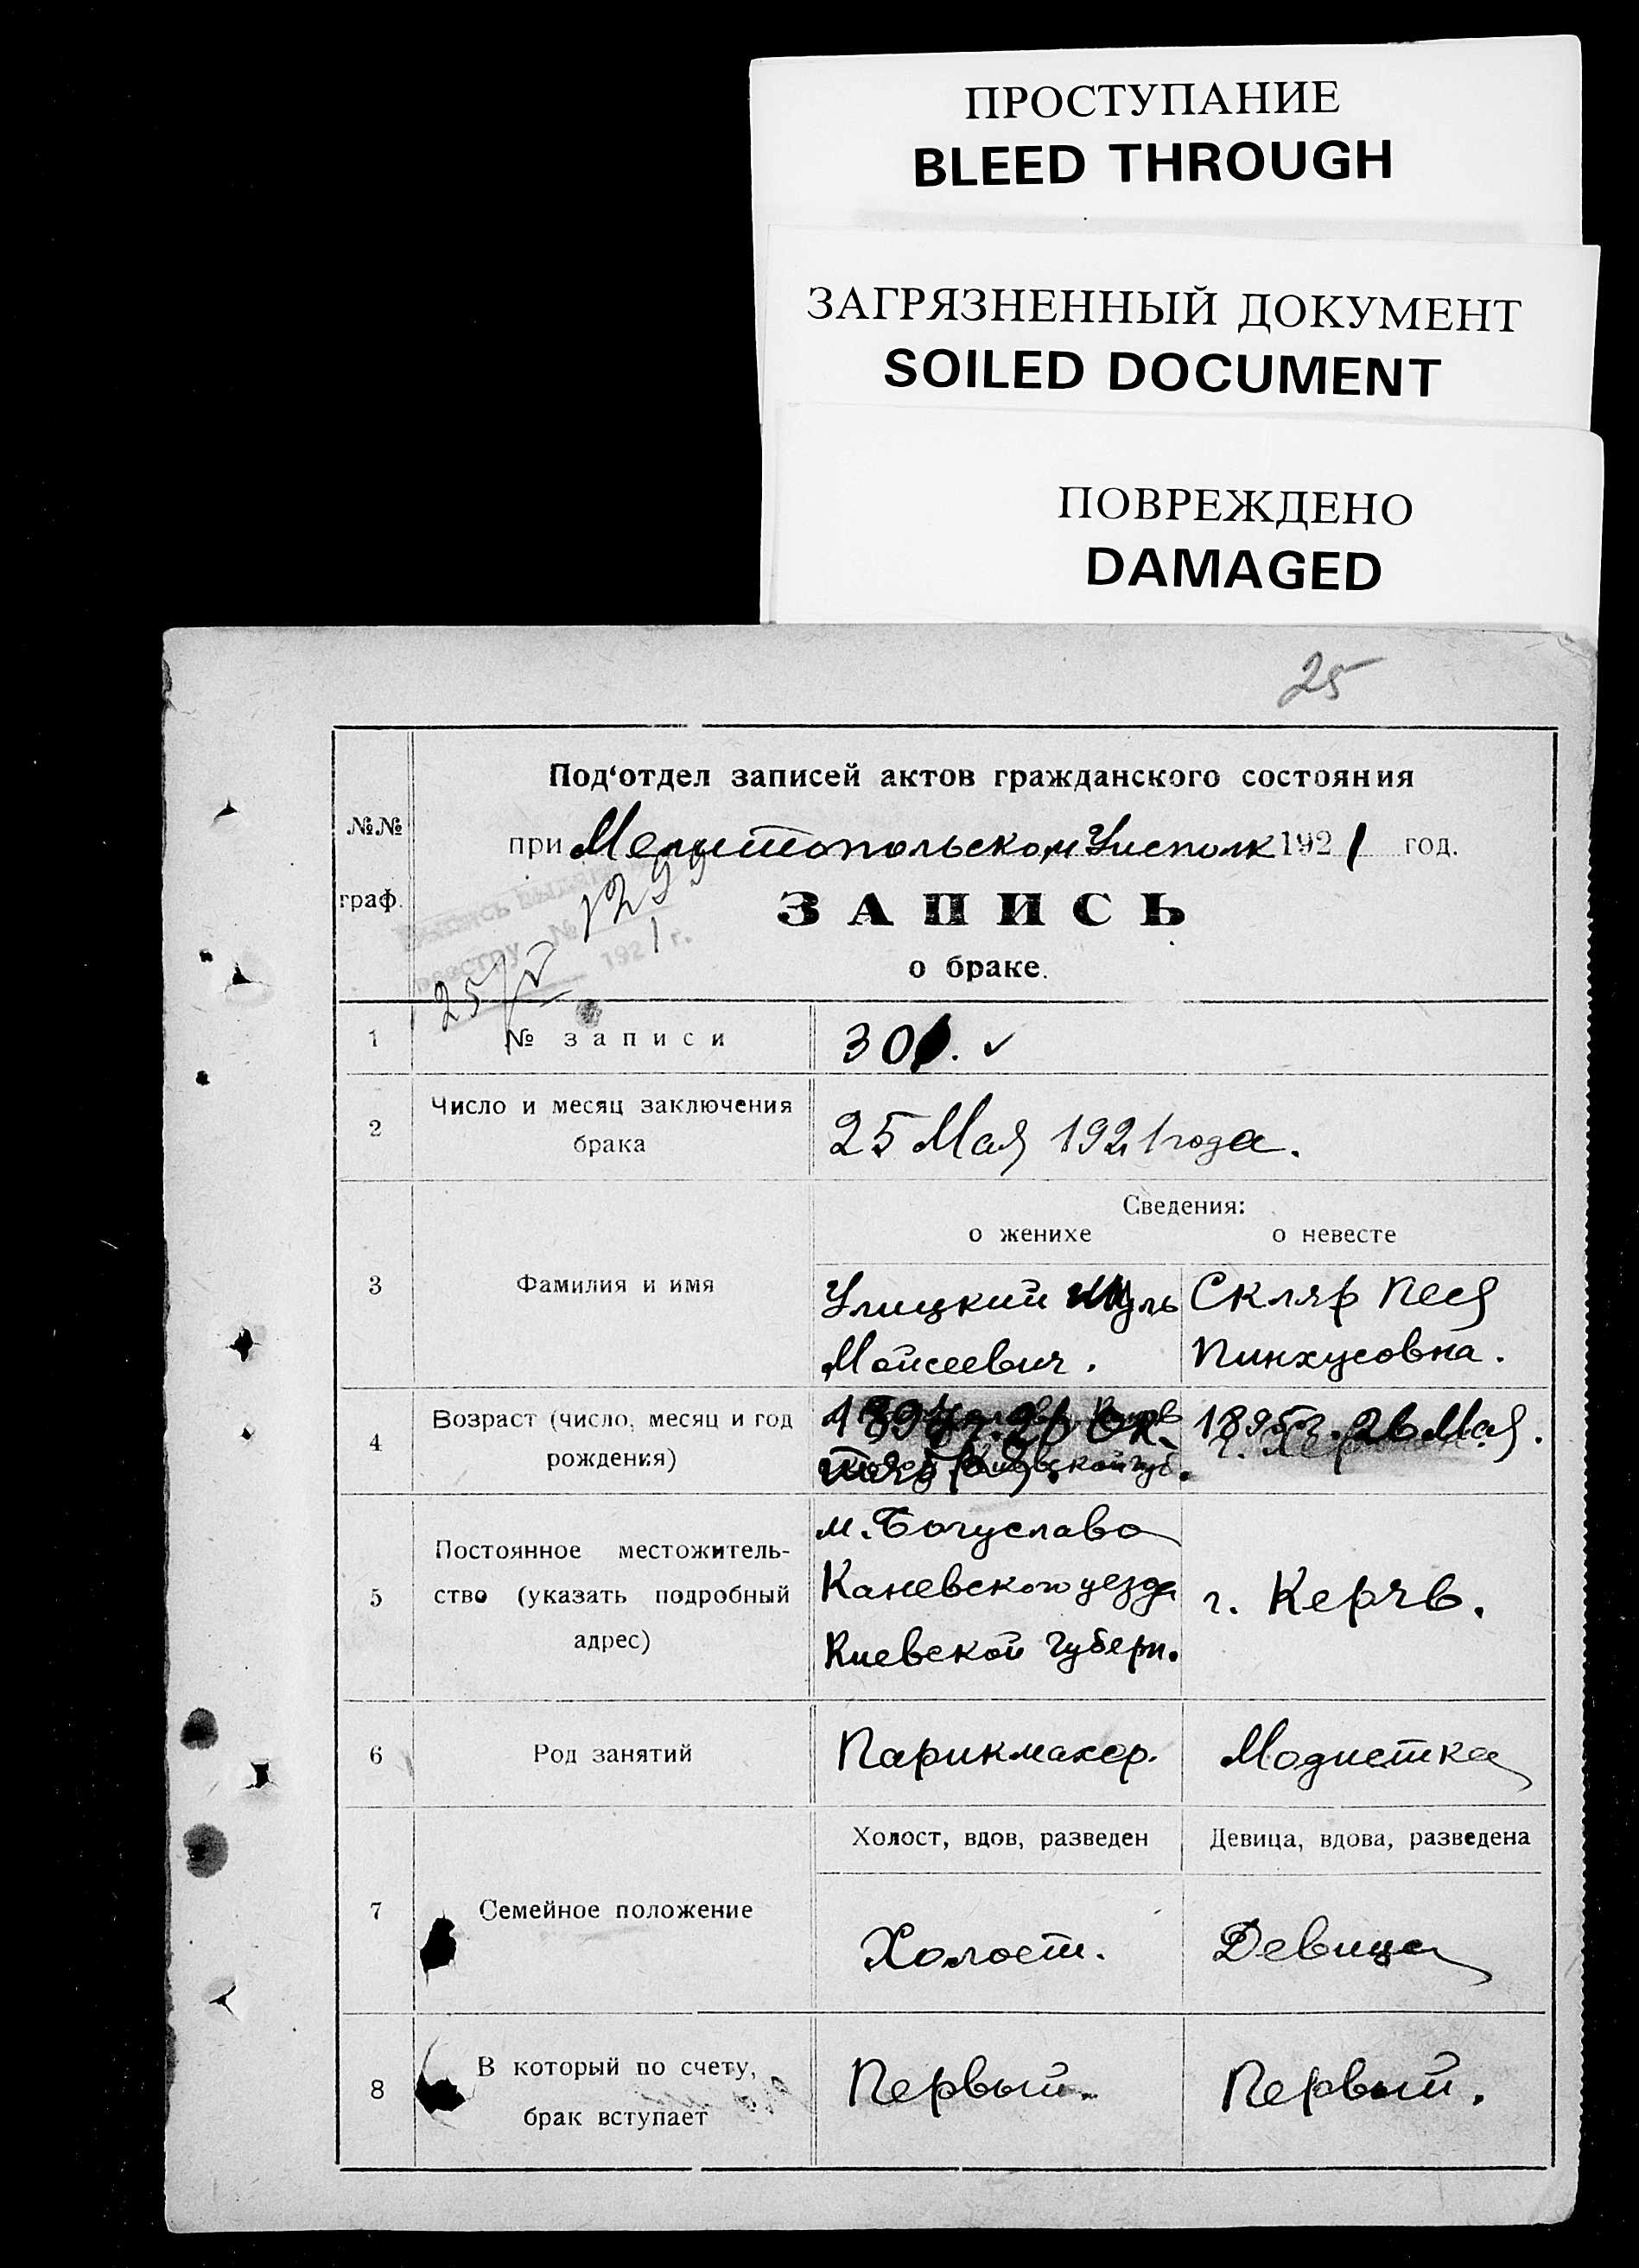 ПРОСТУПАНИЕ
BLEED THROUGH
ЗАГРЯЗНЕННЫЙ ДОКУМЕНТ
SOILED DOCUMENT
ПОВРЕЖДЕНО
DAMAGED
25
№№
граф.
Под'отдел записей актов гражданского состояния
при Мелитопольском Уисполк 1921 год.
1299
1921 г.
25/V
ЗАПИСЬ
о браке.
1
№ записи
30
2
Число и месяц заключения
брака
25 Мая 1921 года.
Сведения:
о женихе
о невесте
3
Фамилия и имя
Улицкий
Моисеевич.
Скляр Песя
Пинхусовна.
4
Возраст (число, месяц и год
рождения)
26 Мая.
5
Постоянное местожитель-
ство (указать подробный
адрес)
м. Богуслава
Каневского уезда
Киевской Губерн.
г. Керчь.
6
Род занятий
Парикмахер.
Модистка
7
Семейное положение
Холост, вдов, разведен
Девица, вдова, разведена
Холост.
Девица
8
В который по счету,
брак вступает
Первый.
Первый.